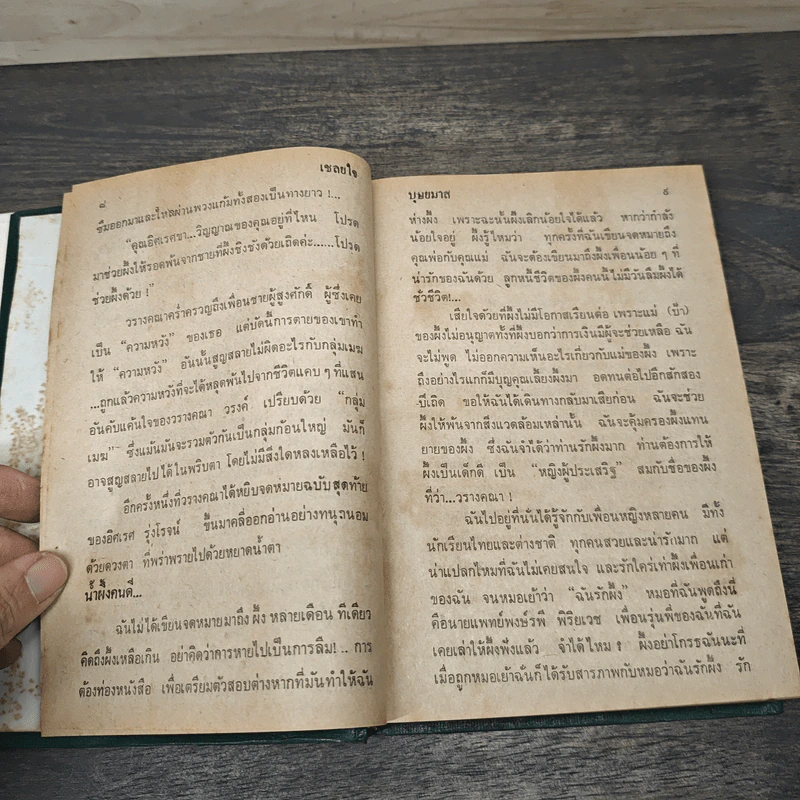 ๘ เชลยใจ
ซึมออกมาและไหลผ่านพวงแก้มทั้งสองเป็นทางยาว !...
“คุณอิศเรศขา...วิญญาณของคุณอยู่ที่ไหน โปรด
มาช่วยผึ้งให้รอดพ้นจากชายที่ผึ้งชิงชังด้วยเถิดค่ะ......โปรด
ช่วยผึ้งด้วย !”
วรางคณาคร่ำครวญถึงเพื่อนชายผู้สูงศักดิ์ ผู้ซึ่งเคย
เป็น “ความหวัง” ของเธอ แต่บัดนี้การตายของเขาทำ
ให้ “ความหวัง” อันนั้นสูญสลายไม่ผิดอะไรกับกลุ่มเมฆ
...ถูกแล้วความหวังที่จะได้หลุดพ้นไปจากชีวิตแคบ ๆ ที่แสน
อันคับแค้นใจของวรางคณา วรงค์ เปรียบด้วย “กลุ่ม
เมฆ” ซึ่งแม้นมันจะรวมตัวกันเป็นกลุ่มก้อนใหญ่ มันก็
อาจสูญสลายไปได้ในพริบตา โดยไม่มีสิ่งใดหลงเหลือไว้ !
อีกครั้งหนึ่งที่วรางคณาได้หยิบจดหมายฉบับสุดท้าย
ของอิศเรศ รุ่งโรจน์ ขึ้นมาคลี่ออกอ่านอย่างทนุถนอม
ด้วยดวงตา ที่พร่าพรายไปด้วยหยาดน้ำตา
น้ำผึ้งคนดี...
ฉันไม่ได้เขียนจดหมายมาถึง ผึ้ง หลายเดือน ทีเดียว
คิดถึงผึ้งเหลือเกิน อย่าคิดว่าการหายไปเป็นการลืม! .. การ
ต้องท่องหนังสือ เพื่อเตรียมตัวสอบต่างหากที่มันทำให้ฉัน
บุษยมาส ๙
ห่างผึ้ง เพราะฉะนั้นผึ้งเลิกน้อยใจได้แล้ว หากว่ากำลัง
น้อยใจอยู่ ผึ้งรู้ไหมว่า ทุกครั้งที่ฉันเขียนจดหมายถึง
คุณพ่อกับคุณแม่ ฉันจะต้องเขียนมาถึงผึ้งเพื่อนน้อย ๆ ที่
น่ารักของฉันด้วย ลูกหนี้ชีวิตของผึ้งคนนี้ ไม่มีวันลืมผึ้งได้
ชั่วชีวิต!...
เสียใจด้วยที่ผึ้งไม่มีโอกาสเรียนต่อ เพราะแม่ (ป้า)
ของผึ้งไม่อนุญาตทั้งที่ผึ้งบอกว่าการเงินมีผู้จะช่วยเหลือ ฉัน
จะไม่พูด ไม่ออกความเห็นอะไรเกี่ยวกับแม่ของผึ้ง เพราะ
ถึงอย่างไรแกก็มีบุญคุณเลี้ยงผึ้งมา อดทนต่อไปอีกสักสอง
ปีเถิด ขอให้ฉันได้เดินทางกลับมาเสียก่อน ฉันจะช่วย
ผึ้งให้พ้นจากสิ่งแวดล้อมเหล่านั้น ฉันจะคุ้มครองผึ้งแทน
ยายของผึ้ง ซึ่งฉันจำได้ว่าท่านรักผึ้งมาก ท่านต้องการให้
ผึ้งเป็นเด็กดี เป็น “หญิงผู้ประเสริฐ” สมกับชื่อของผึ้ง
ที่ว่า...วรางคณา !
ฉันไปอยู่ที่นั่นได้รู้จักกับเพื่อนหญิงหลายคน มีทั้ง
นักเรียนไทยและต่างชาติ ทุกคนสวยและน่ารักมาก แต่
น่าแปลกไหมที่ฉันไม่เคยสนใจ และรักใคร่เท่าผึ้งเพื่อนเก่า
ของฉัน จนหมอเย้าว่า “ฉันรักผึ้ง” หมอที่ฉันพูดถึงนี้
คือนายแพทย์พงษ์รพี พิริยเวช เพื่อนรุ่นพี่ของฉันที่ฉัน
เคยเล่าให้ผึ้งฟังแล้ว จำได้ไหม ? ผึ้งอย่าโกรธฉันนะที่
เมื่อถูกหมอเย้าฉันก็ได้รับสารภาพกับหมอว่าฉันรักผึ้ง รัก